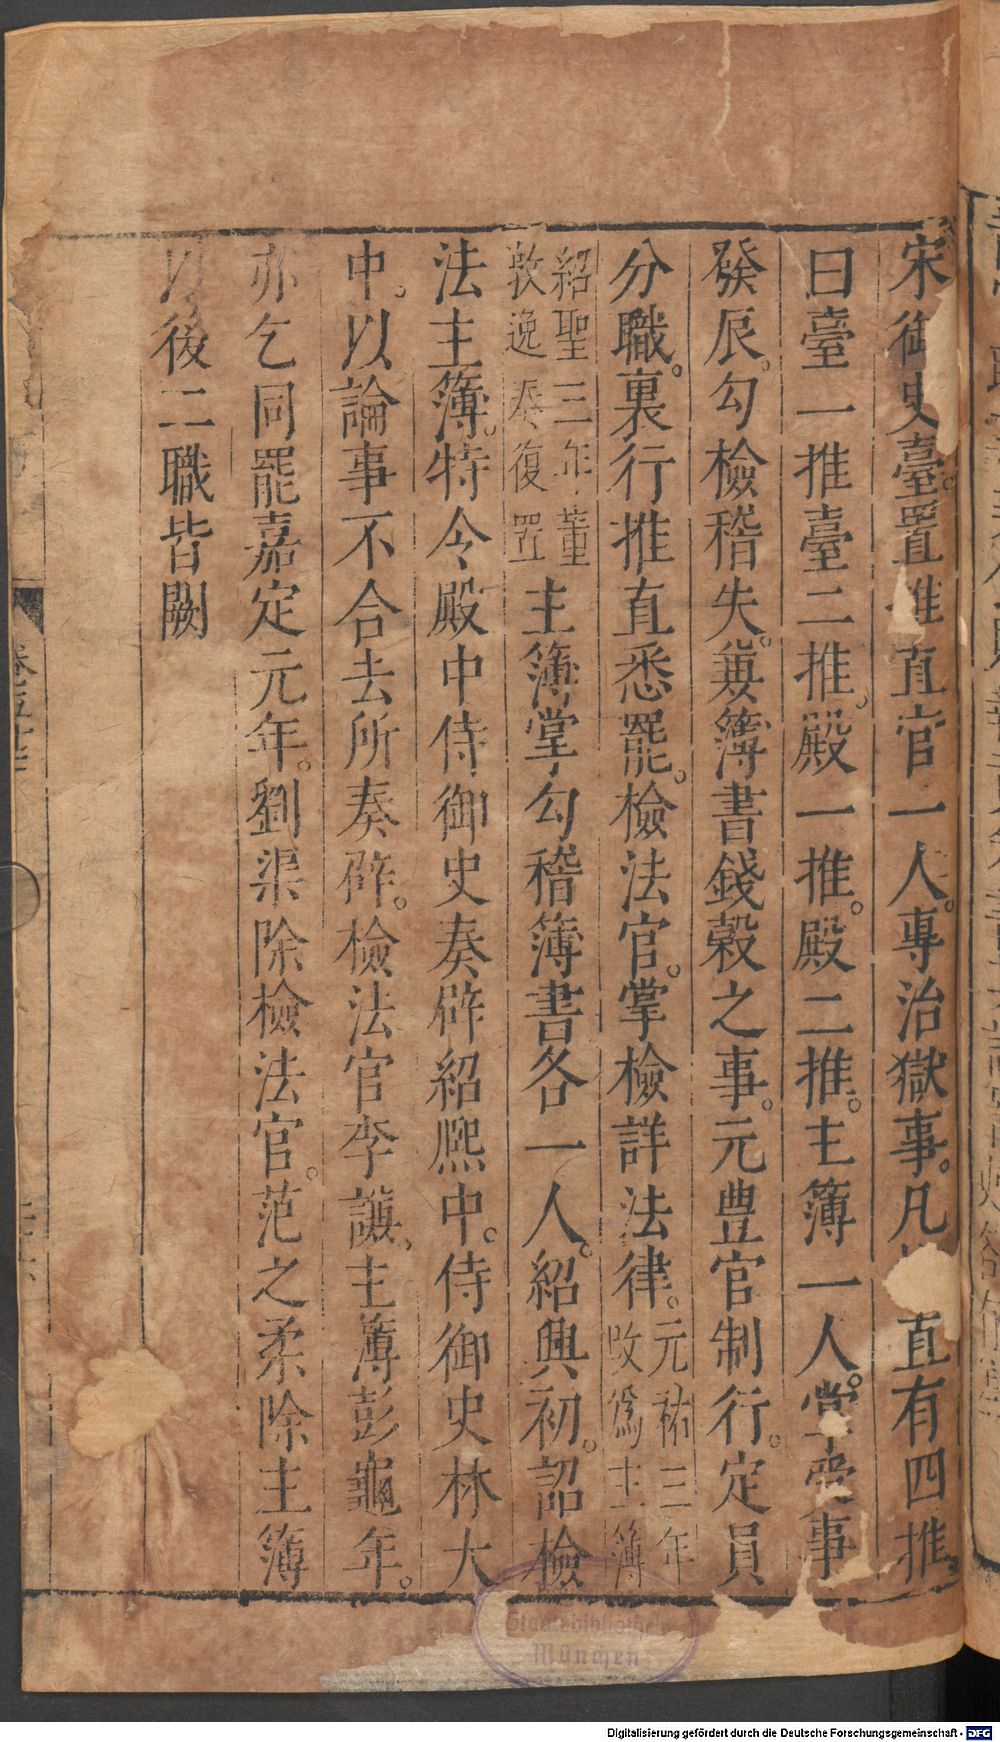 宋御史臺。置推直官一人。專治獄事。凡推直有四推。
曰臺一推臺二推。殿一推。殿二推。主簿一人。掌受事
發辰。勾檢稽失。兼簿書錢穀之事。元豊官制行。定員
分職。裏行推直悉罷。檢法官。掌檢詳法律。元祐三年
改爲主簿
紹聖三年董
敦逸奏復置主簿掌勾稽簿書各一人。紹興初。詔檢
法主簿。特令殿中侍御史奏辟紹熈中。侍御史林大
中。以論事不合去所奏辟。檢法官李謙。主簿彭龜年。
亦乞同罷嘉定元年。劉渠除檢法官。范之柔除主簿
以後二職皆闕
卷五十
Staatsbibliothek
München
Digitalisierung gefördert durch die Deutsche Forschungsgemeinschaft - DFG